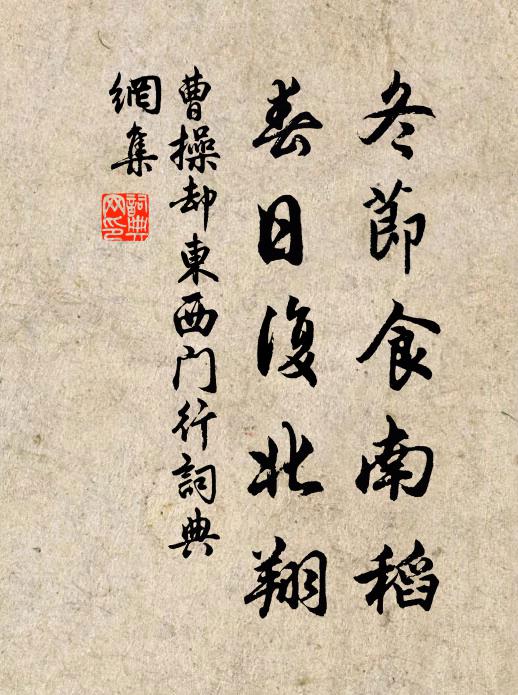 冬節食南稻
春日復北翔
曹操却東西门行詞典
網集
詞典
网印